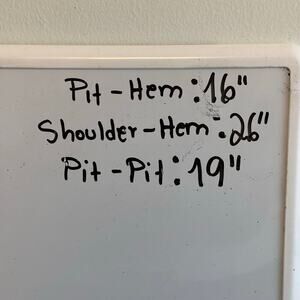 Pit-Hem: 16"
Shoulder-Hem: 26"
Pit-Pit: 19"